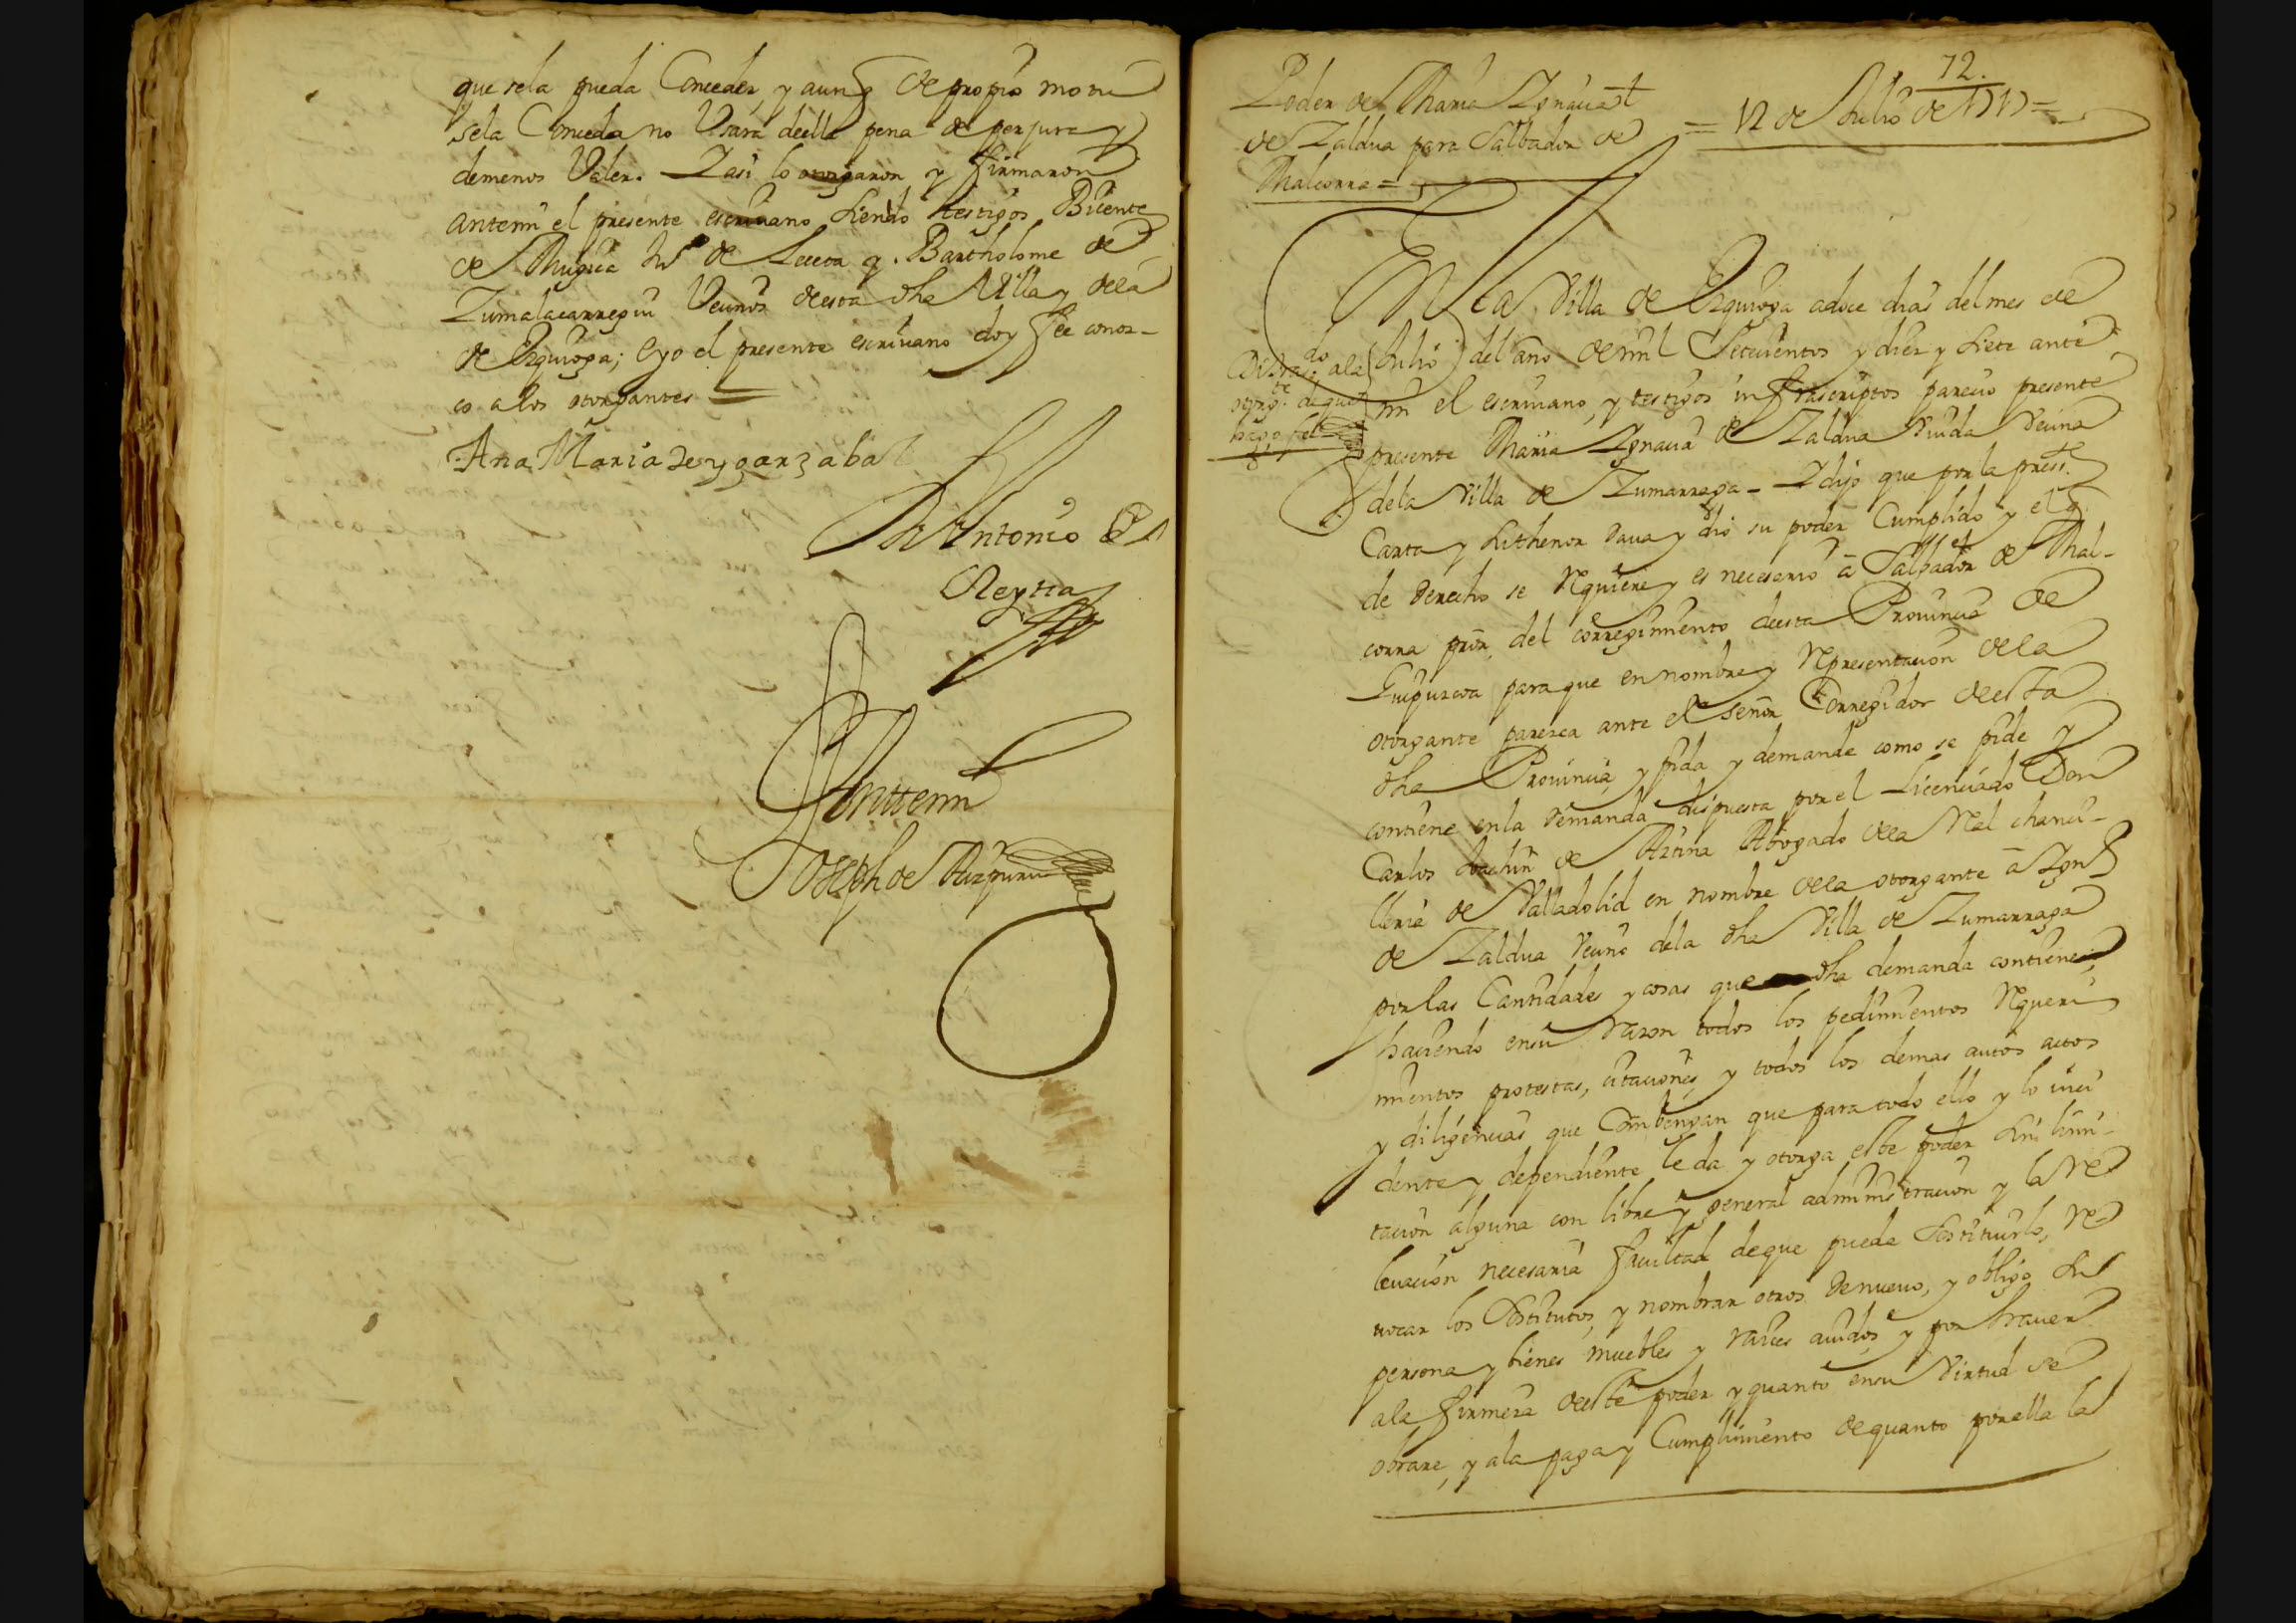 que sela pueda Conceder, y aunq̃ de propio motu
sela Conceda no Vsara deella pena de perjura y
demenos Valer. Y asi lo otorgaron y firmaron
antemi el presente escriuano siendo testigos Bicente
de Mugica de Leceta y Bartholome de
Zumalacarregui Vecinos deesta dha Villa y dela
de Ezquioga; e yo el presente escriuano doy fee conoz-
co alos otorgantes
Ana Maria de ygarzabal
Antonio
Reytia
Anttemi
Joseph de Aizpuru
72.
Poder de Maria Ignacia
de Zaldua para Salbador de
Malcorra =
= 12 de Julio de 1717 =
En la Villa de Ezquioga adoce dias del mes de
Julio del año de mil Setecientos y diez y siete ante
mi el escriuano, y testigos infrascriptos parecio presente
presente Maria Ignacia de Zaldua Viuda Vecina
dela Villa de Zumarraga - Y dijo que por la press.te
Carta y su thenor daua y dio su poder Cumplido y el q̃
de derecho se rrequiere y es necesario â Salbador de Mal-
corra pror. del corregimiento deesta Prouincia de
Guipuzcoa para que en nombre y rrepresentacion dela
otorgante parezca ante el señor Corregidor deesta
dha Prouincia, y pida y demande como se pide y
contiene en la demanda dispuesta por el Licenciado Don
Carlos Joachin de Aztina Abogado dela rreal chanci-
lleria de Valladolid en nombre dela otorgante â Ign.
de Zaldua vecino dela dha Villa de Zumarraga
por las Cantidades y cosas que dha demanda contiene
haciendo en su razon todos los pedimientos rrequeri
mientos protestas, citaciones, y todos los demas autos actos
y diligencias que Combengan que para todo ello y lo inci
dente y dependiente le da y otorga este poder sin limi-
tacion alguna con libre y general administracion y la rre
leuacion necesaria facultad de que pueda sostituirlo, rre
uocar los Sostitutos, y nombrar otros de nueuo, y obligo su
persona y bienes muebles y raices auidos y por hauer
ala firmeza deeste poder y quanto en su Virtud se
obrare, y ala paga y Cumplimiento de quanto por ella la
do
ala
otorg.te de que
hago fee